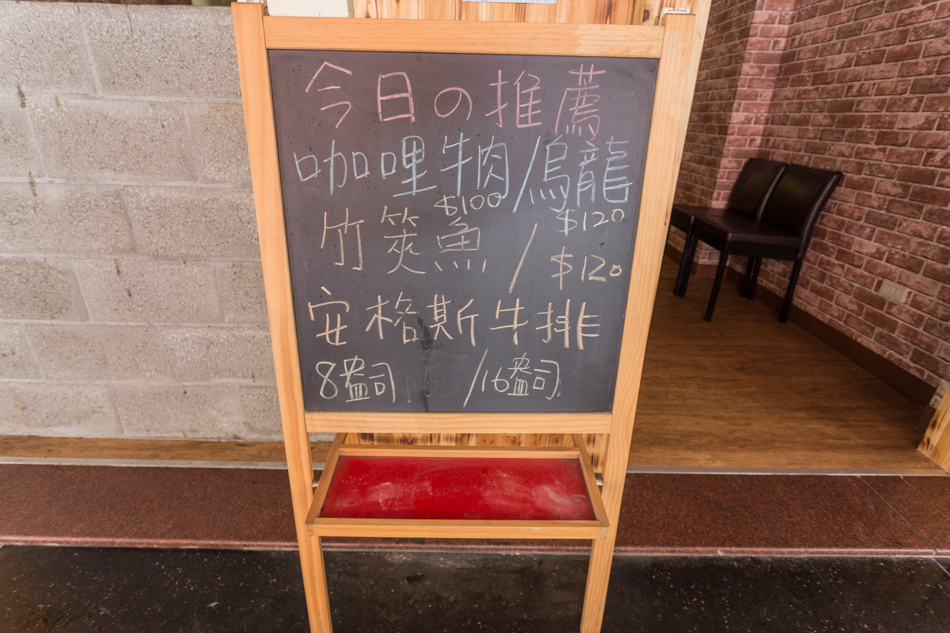 今日の推薦
咖哩牛肉/烏龍
$100 $120
竹筴魚/$120
安格斯牛排
8盎司/16盎司